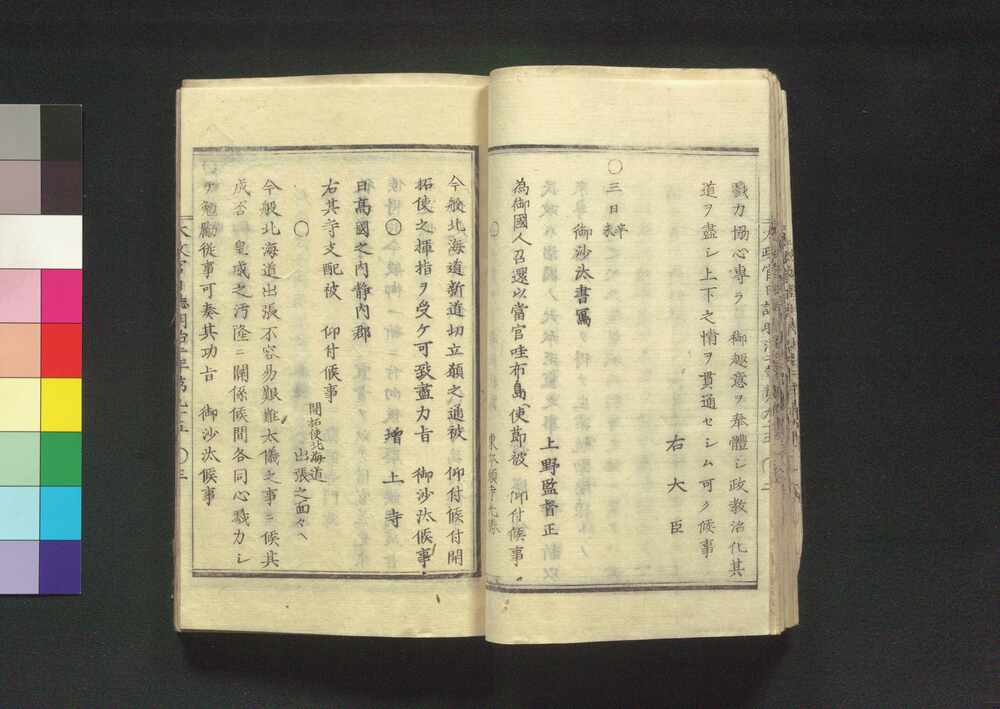 戮力協心専ラ 御趣意ヲ奉體シ政教治化其
道ヲ盡シ上下之情ヲ貫通セシム可ク候事
右大臣
〇三日
御沙汰書寫
上野監督正
為御國人召還以當官哇布島使節被 仰付候事
〇
今般北海道新道切立願之通被 仰付候付開
拓使之揮指ヲ受ケ可致盡力旨 御沙汰候事
〇 增上寺
日高國之内静内郡
右其寺支配被 仰付候事
〇
開拓使北海道
出張之面々ヘ
今般北海道出張不容易艱難太儀之事ニ候其
成否 皇威之汚隆ニ關係候間各同心戮力シ
テ勉勵従事可奏其功旨 御沙汰候事